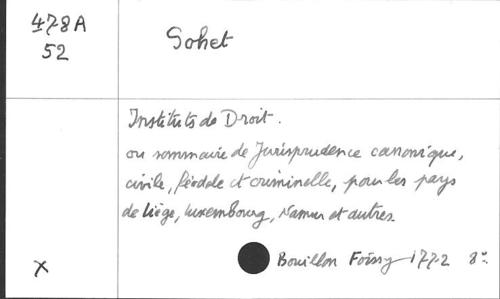 478A
52
Sohet
Instituts de Droit.
ou sommaire de Jurisprudence canonique,
civile, féodale et criminelle, pour les pays
de liège, Luxembourg, Namur et autres.
X
Bouillon Foissy 1772 8°